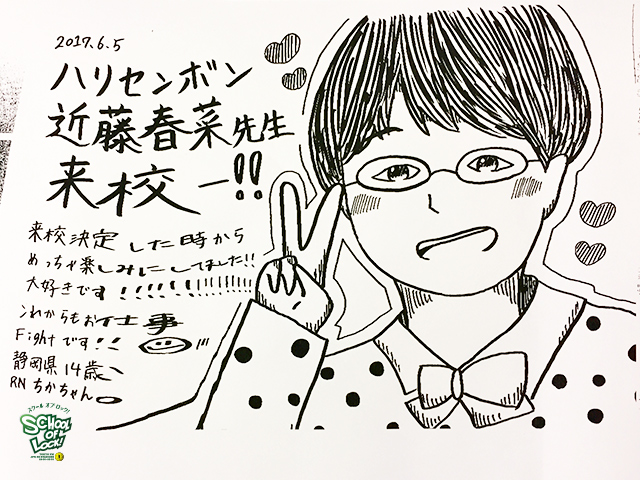 2017.6.5
ハリセンボン
近藤春菜先生
来校ー!!
来校決定した時から
めっちゃ楽しみにしてました!!
大好きです!!!!!!!!!!!!!
これからもお仕事
Fightです!!
静岡県14歳
RN ちかちゃん
スクール オブ ロック!
SCHOOL
OF
LOCK!